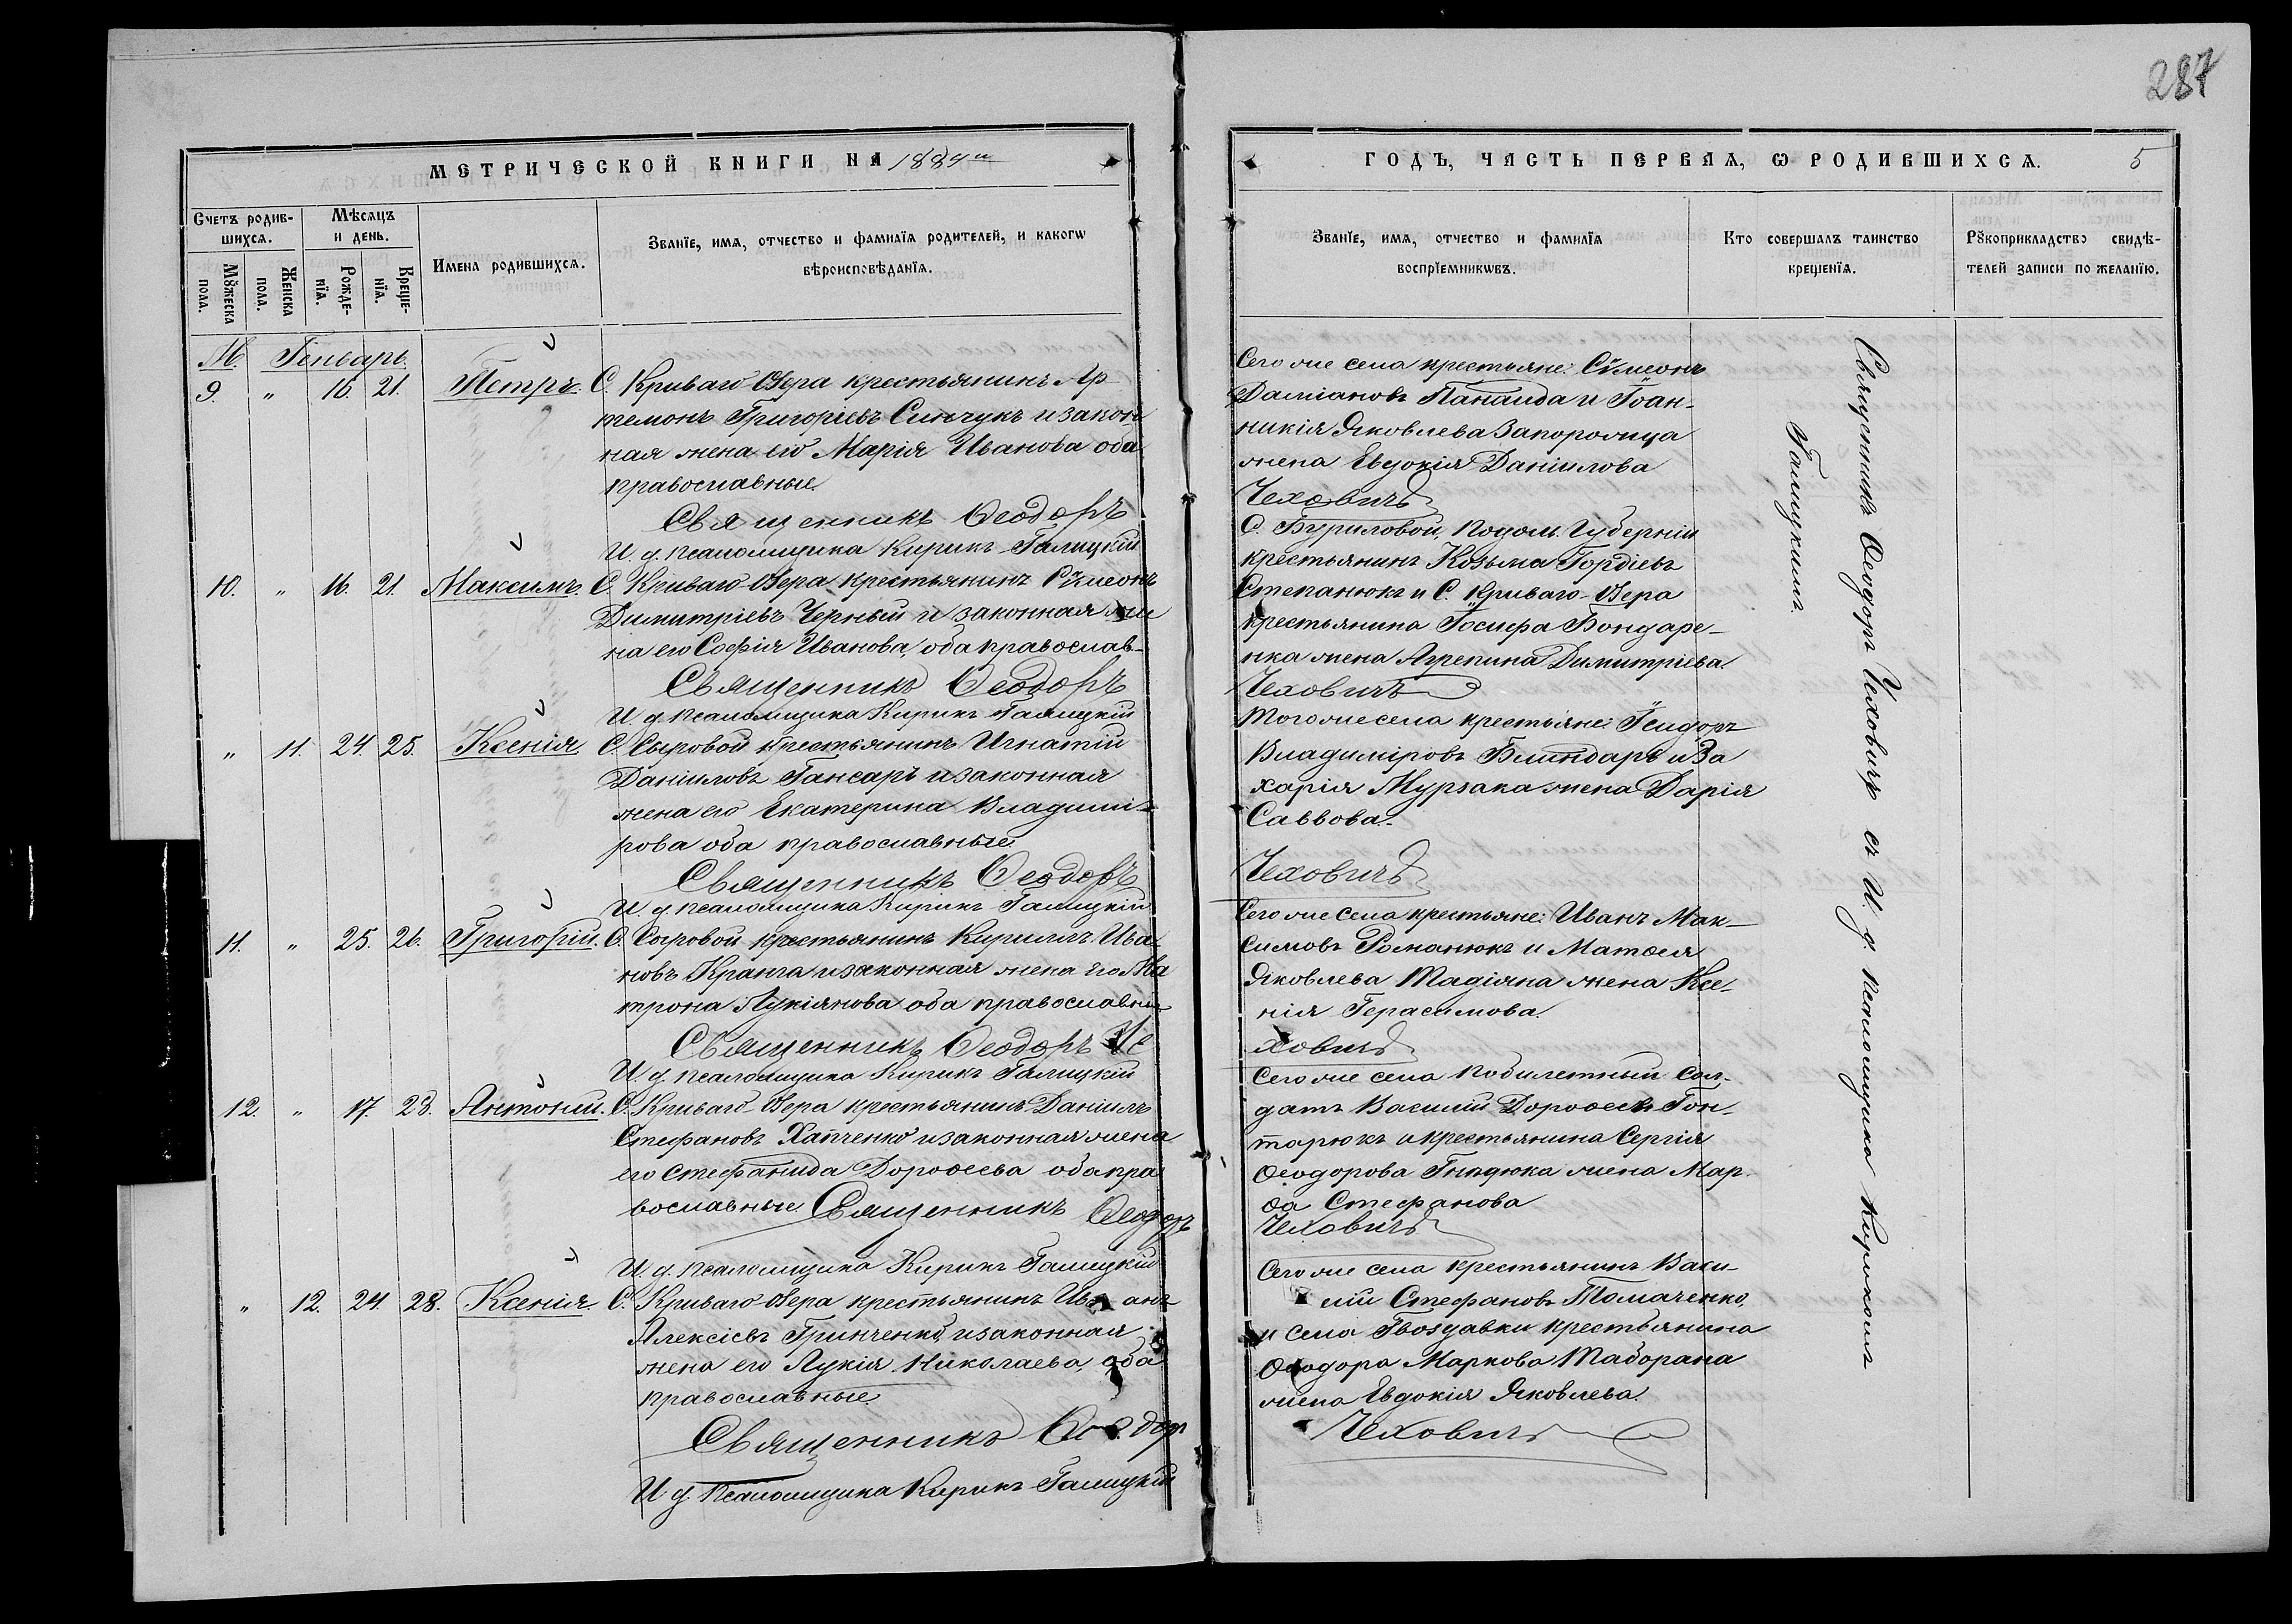 287
МЕТРИЧЕСКОЙ КНИГИ НА 1884 й
Счетъ родив-
шихся.
Мѣсяцъ
и день.
Мꙋжеска
пола.
Женска
пола.
Рожде-
нїя.
Креще-
нїя.
Имена родившихся.
Званїе, имя, отчество и фамилїя родителей, и какогѡ
вѣроисповѣданїя.
М. Генварь.
9. " 16. 21. Петръ. С. Криваго Озера крестьянинъ Ар-
темонъ Григоріевъ Синчукъ и закон
ная жена его Марія Иванова оба
православные.
Священникъ Ѳеодоръ
И. д. псаломщика Кирикъ Галицкій
10. " 16. 21. Максимъ. С. Криваго Озера крестьянинъ Сѵмеонъ
Димитріевъ Черный и законная же
на его Софія Иванова, оба православ-
Священникъ Ѳеодоръ
И. д. псаломщика Кирикъ Галицкій
" 11. 24. 25. Ксенія. С. Сыровой крестьянинъ Игнатій
Даніиловъ Гансаръ и законная
жена его Екатерина Владими-
рова оба православные.
Священникъ Ѳеодоръ
И. д. псаломщика Кирикъ Галицкій
11. " 25. 26. Григорій. С. Сыровой крестьянинъ Кириллъ Ива-
новъ Кранга и законная жена его Ма
трона Лукіянова оба православны
Священникъ Ѳеодоръ Че
И. д. псаломщика Кирикъ Галицкій
12. " 17. 28. Антоній. С. Криваго Озера крестьянинъ Даніилъ
Стефановъ Хапченко и законная жена
его Стефанида Дороѳеева оба пра
вославные Священникъ Ѳеодоръ
И. д. псаломщика Кирикъ Галицкій
" 12. 24. 28. Ксенія. С. Криваго Озера крестьянинъ Иванъ
Алексіевъ Гринченко, и законная
жена его Лукія Николаева, оба
православные.
Священникъ Ѳеодор
И. д. псаломщика Кирикъ Галицкій
ГОДЪ, ЧАСТЬ ПЕРВАЯ, Ѡ РОДИВШИХСЯ. 5
Званїе, имя, отчество и фамилїя
воспрїемникѡвъ.
Кто совершалъ таинство
крещенїя.
Рꙋкоприкладство свидѣ-
телей записи по желанїю.
Сего же села крестьяне: Сѵмеонъ
Даміановъ Панаида и Іоан-
никія Яковлева Запорожца
жена Евдокія Даніилова
Чеховичъ
С. Буриловой, Подол. Губерніи
крестьянинъ Козьма Гордіевъ
Степанюкъ и С. Криваго-Озера
крестьянина Іосифа Бондаре-
нка жена Агрепина Димитріева.
Чеховичъ
Того же села крестьяне: Ѳеидоръ
Владиміровъ Блиндаръ и За
харія Мурзака жена Дарія
Саввова.
Чеховичъ
Сего же села крестьяне: Иванъ Мак-
симовъ Романюкъ и Матѳея
Яковлева Тадіяна жена Ксе-
нія Герасимова.
ховичъ
Сего же села побилетный сол-
датъ Василій Дороѳеевъ Гон-
тарюкъ и крестьянина Сергія
Ѳеодорова Гнидюка жена Мар-
ѳа Стефанова
Чеховичъ
Сего же села крестьянинъ Васи-
лій Стефановъ Томаченко,
и села Гвоздавки крестьянина
Ѳеодора Маркова Таборана
жена Евдокія Яковлева.
Чеховичъ
Священникъ Ѳеодоръ Чеховичъ съ И. д. псаломщика Кирикомъ
Галицкимъ.